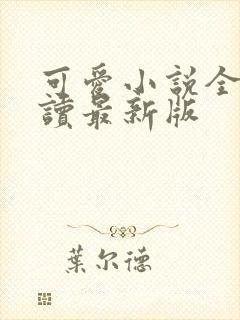 可愛小說全
讀最新版
葉尔德